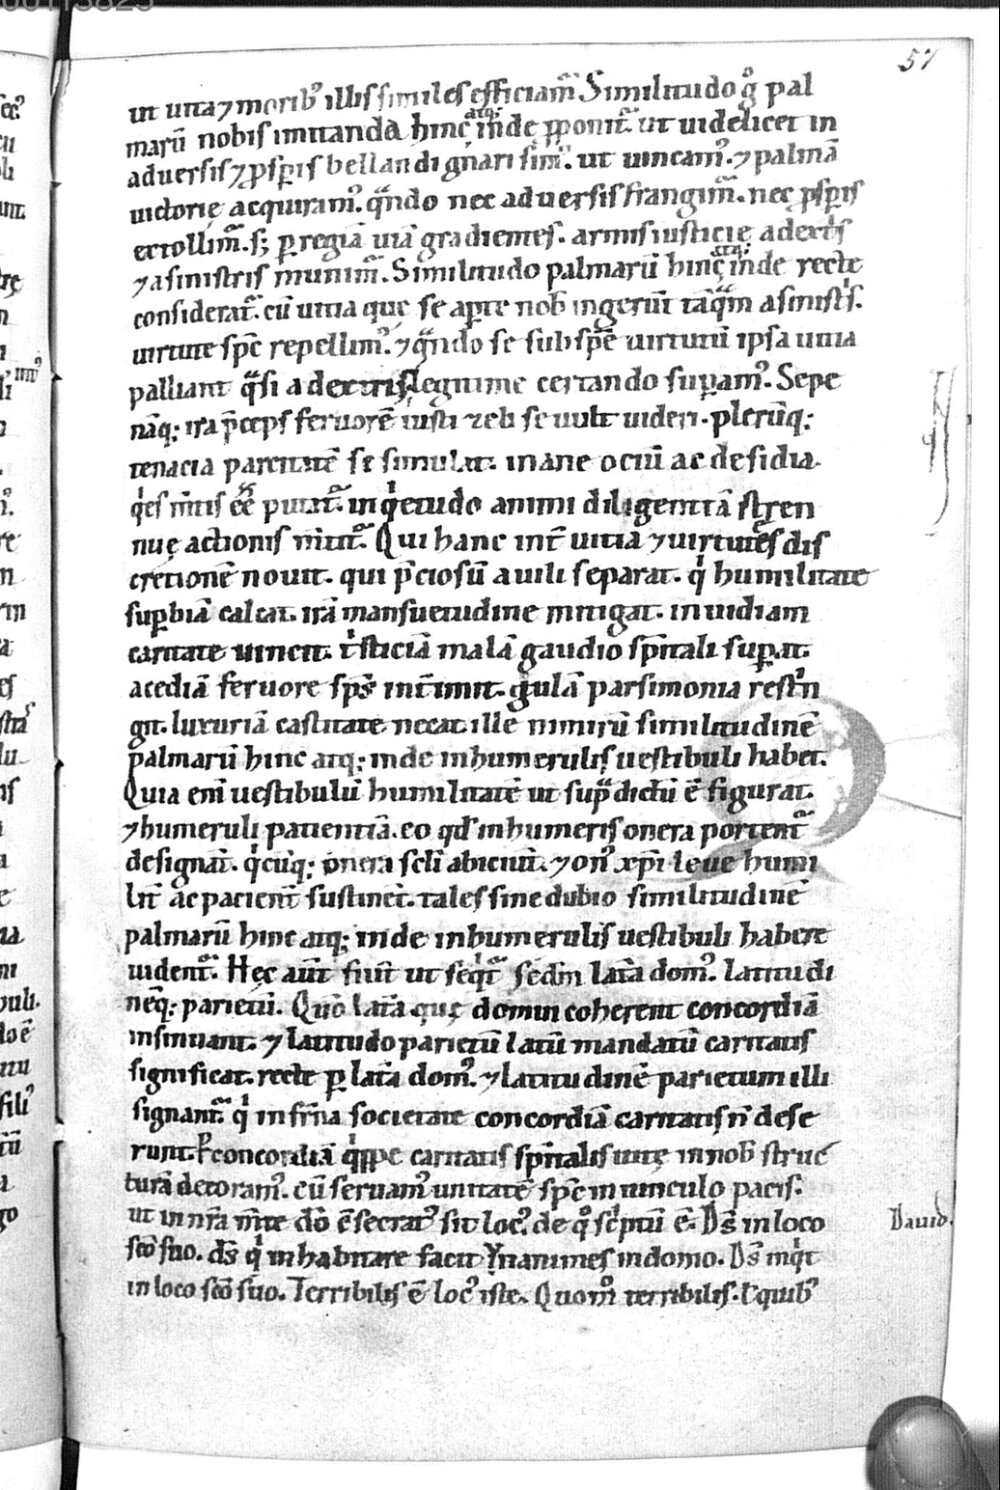 57
in uita ⁊ morib᷒ illis similes efficiam᷒ Similitudo g̊ pal
marū nobis imitanda hinc atq; inde p̱ponit᷑ ut uidelicet in
aduersis ⁊ p̱sp̱is bellandi gnari sim᷒. ut uincam᷒. ⁊ palmā
uictorię acquiram᷒. q̄ndo nec aduersis frangim᷒. nec p̱sp̱is
extollim᷒. s; p̱ regiā uiā gradientes. armis iusticię a dext̄s
⁊ a sinistris munim᷒. Similitudo palmarū hinc atq; inde recte
considerat᷑. cū uitia que se ap̱te nob̄ ingerunt tāq̄m a sinist̄s.
uirtute sp̄c repellim᷒. ⁊ q̄ndo se sub spē uirtutū ipsa uitia
palliant q̄si a dextris legitime certando sup̱am᷒. Sepe
nāq; ira p̄ceps feruorē iusti zeli se uult uideri. plerūq;
tenacia parcitatē se simulat. inane ociū ac desidia
q̇es m̄tis eē̄ putat᷑. inq̇etudo animi diligentiā stren
nuę actionis m̄tit᷑. Qui hanc int̄ uitia ⁊ uirtutes dis
cretionē nouit. qui p̄ciosū a uili separat. q̇ humilitate
sup̱biā calcat. irā mansuetudine mitigat. inuidiam
caritate uincit. tristiciā malā gaudio sp̄itali sup̱at.
acediā feruore sp̄s int̄imit. gulā parsimonia restrin
git. luxuriā castitate necat. ille nimirū similitudinē
palmarū hinc atq; inde in humerulis uestibuli habet.
Quia eni uestibulū humilitatē ut sup̄ dictū ē figurat.
⁊ humeruli patientiā. eo qd̄ in humeris onera portent᷑
designant. q̇cūq; onera sc̄li abiciunt. ⁊ on᷒ xp̄i leue humi
lit̄ ac pacient̄ sustinet. tales sine dubio similitudinē
palmarū hinc atq; inde in humerulis uestibuli habere
uident᷑. Hęc aūt fiunt ut seq̇t᷑ sedm̄ lat̄a dom᷒. latitudi
nēq; parietū. Quō lat̄a quę domui coherent concordiā
insinuant. ⁊ latitudo parietū latū mandatū caritatis
significat. recte p̱ lat̄a dom᷒. ⁊ latitudinē parietum illi
signant᷑. q̇ in fr̄na societate concordiā caritatis n̄ dese
runt. P̱ concordiā q̇ppe caritatis sp̄italis uitę in nob̄ struc
turā decoram᷒. cū seruam᷒ unitatē sp̄c in uinculo pacis.
ut in nr̄a m̄te dō ēsecrat᷒ sit loc᷒. de q̊ sc̄ptū ē. D̄s in loco
sc̄o suo. d̄s q̇ inhabitare facit unanimes in domo. D̄s inq̇t
in loco sc̄o suo. Terribilis ē loc᷒ iste. Quom̊ terribilis. l̄ quib᷒
Dauid.